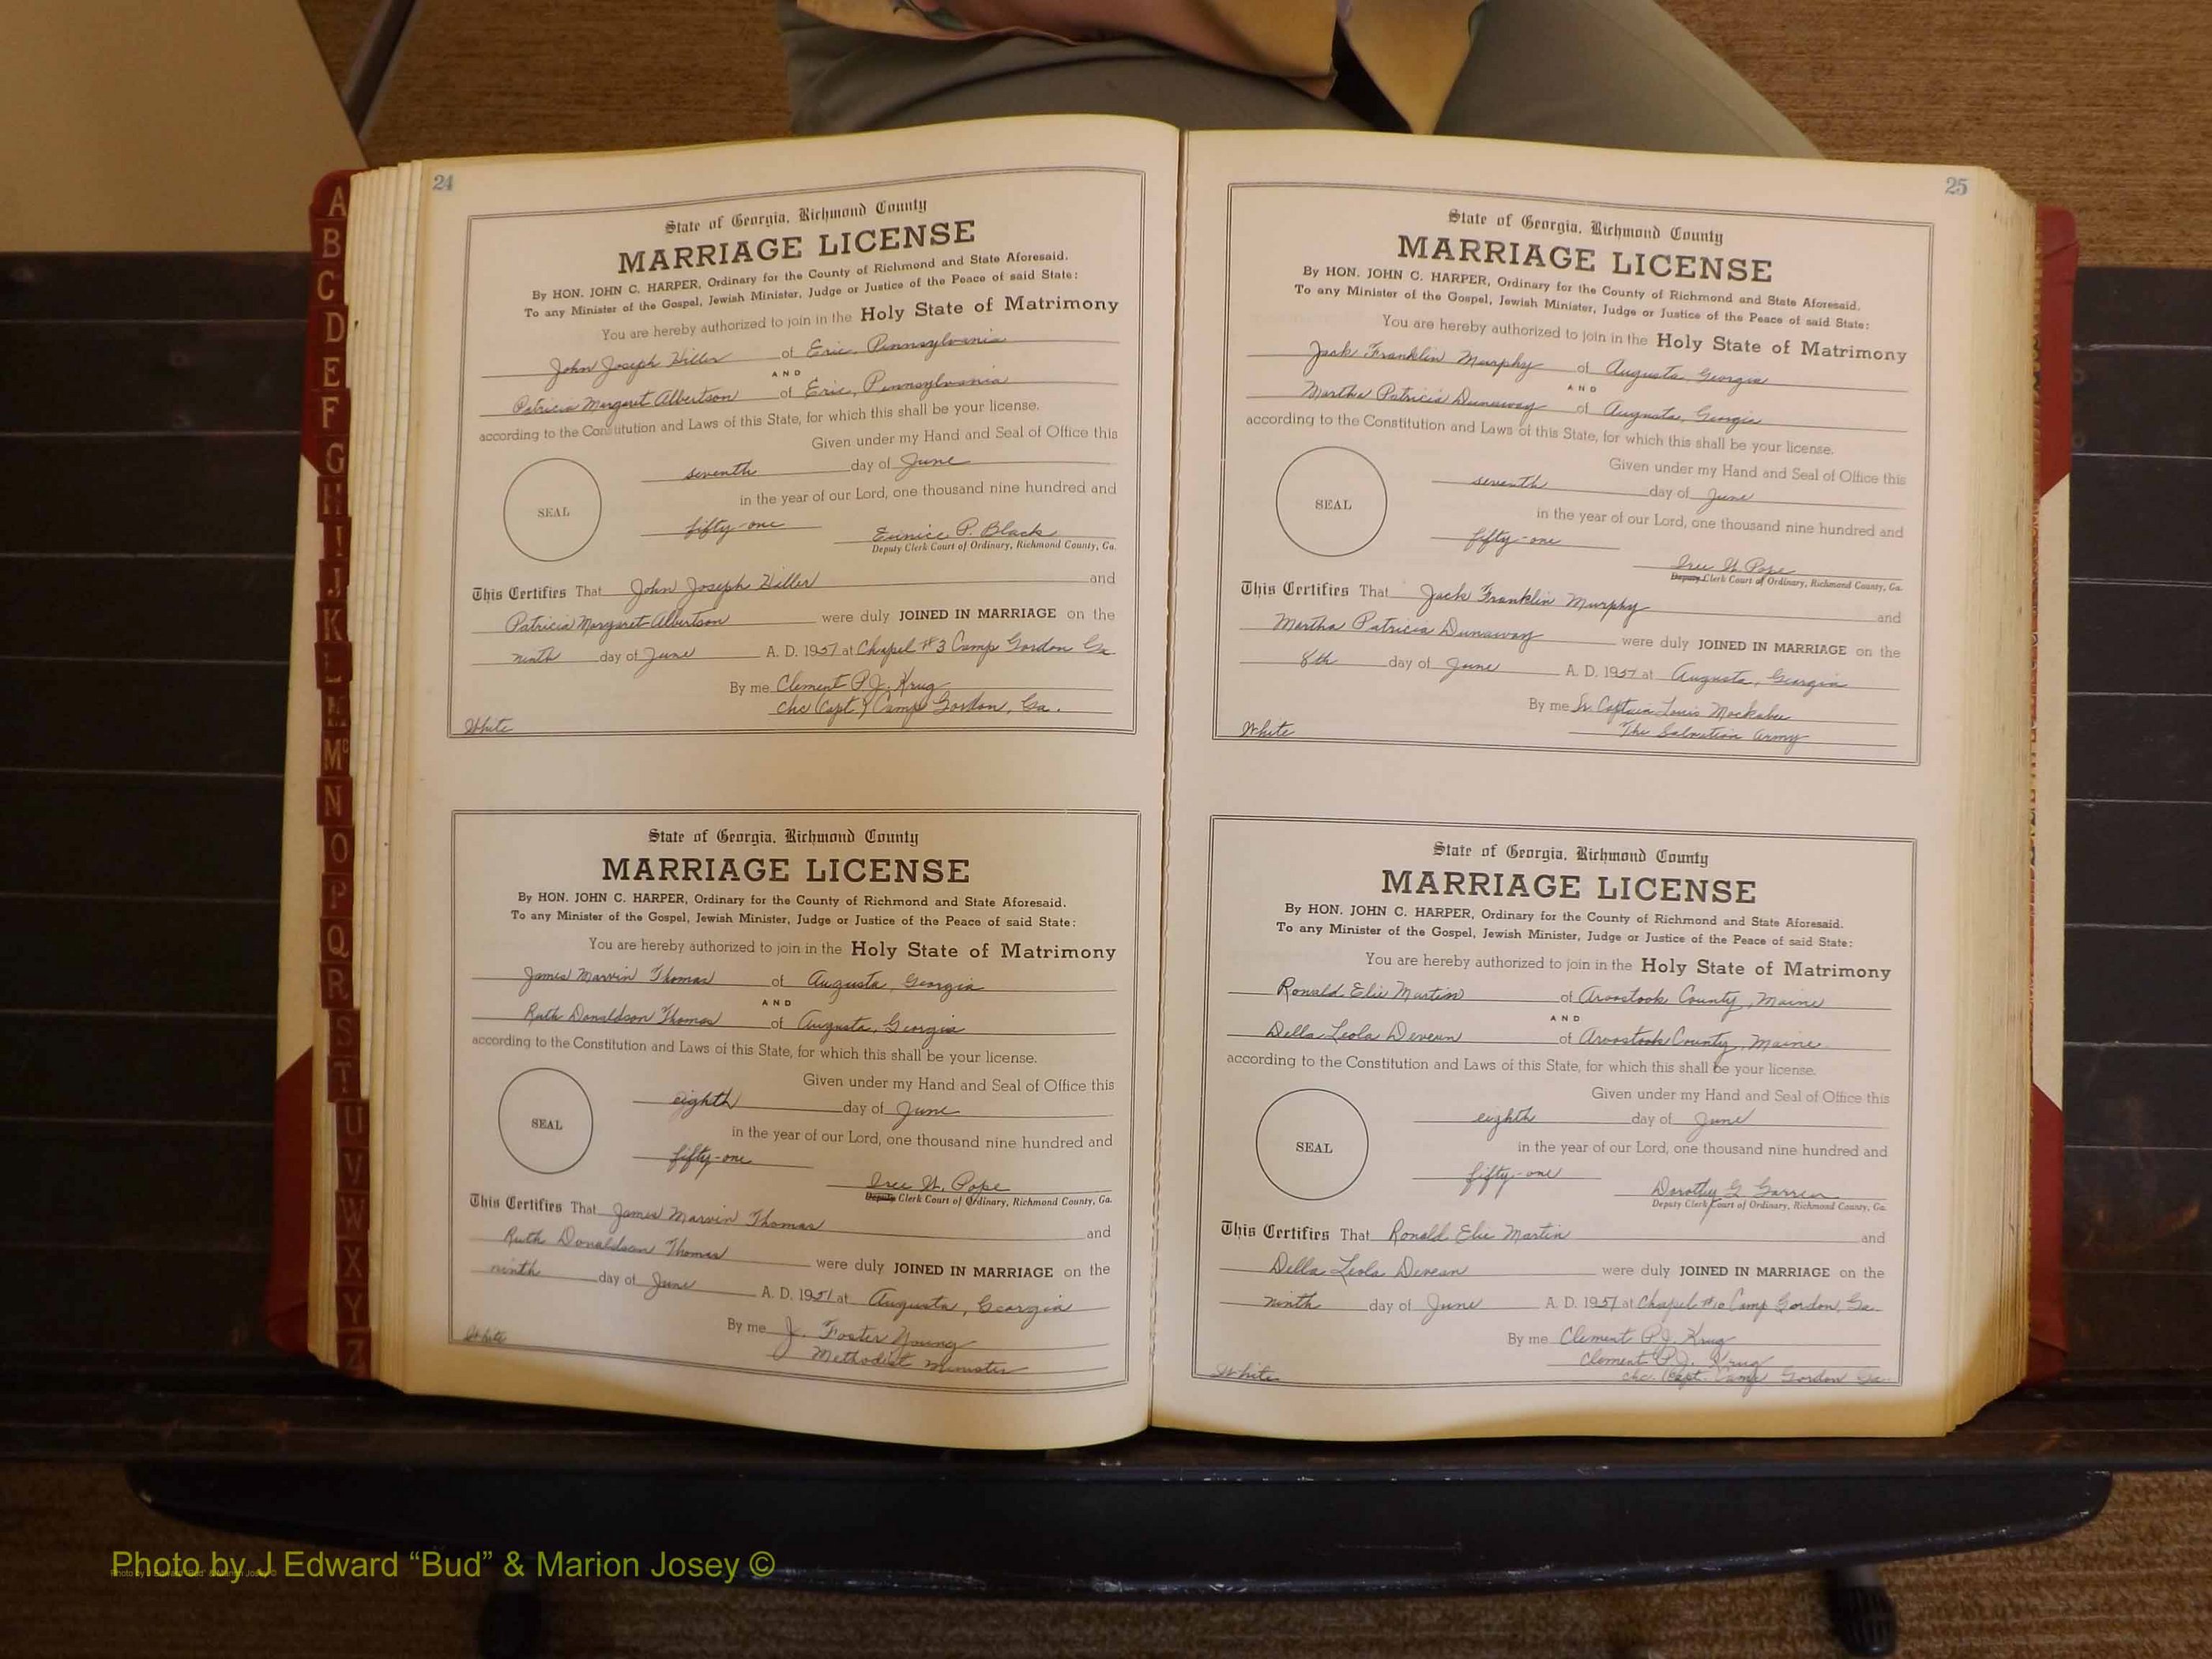 A
B
C
D
E
F
G
H
I
J
K
L
M
Mc
N
O
P
Q
R
S
T
U
V
W
X
Y
Z
24
State of Georgia, Richmond County
MARRIAGE LICENSE
By HON. JOHN C. HARPER, Ordinary for the County of Richmond and State Aforesaid.
To any Minister of the Gospel, Jewish Minister, Judge or Justice of the Peace of said State:
You are hereby authorized to join in the Holy State of Matrimony
John Joseph of Erie, Pennsylvania
AND
Patricia Margaret Albertson of Erie, Pennsylvania
according to the Constitution and Laws of this State, for which this shall be your license.
Given under my Hand and Seal of Office this
seventh day of June
in the year of our Lord, one thousand nine hundred and
SEAL
fifty-one Eunice P. Black
Deputy Clerk Court of Ordinary, Richmond County, Ga.
This Certifies That John Joseph and
Patricia Margaret Albertson were duly JOINED IN MARRIAGE on the
ninth day of June A. D. 1951 at Chapel #3 Camp Gordon Ga.
By me Clement P.J. Krug
Chc (Capt.) Camp Gordon, Ga.
White
State of Georgia, Richmond County
MARRIAGE LICENSE
By HON. JOHN C. HARPER, Ordinary for the County of Richmond and State Aforesaid.
To any Minister of the Gospel, Jewish Minister, Judge or Justice of the Peace of said State:
You are hereby authorized to join in the Holy State of Matrimony
James Marvin Thomas of Augusta, Georgia
AND
Ruth Donaldson Thomas of Augusta, Georgia
according to the Constitution and Laws of this State, for which this shall be your license.
Given under my Hand and Seal of Office this
eighth day of June
in the year of our Lord, one thousand nine hundred and
SEAL
fifty-one W. Pope
Deputy Clerk Court of Ordinary, Richmond County, Ga.
This Certifies That James Marvin Thomas and
Ruth Donaldson Thomas were duly JOINED IN MARRIAGE on the
ninth day of June A. D. 1951 at Augusta, Georgia
By me J. Foster Young
Methodist Minister
White
25
State of Georgia, Richmond County
MARRIAGE LICENSE
By HON. JOHN C. HARPER, Ordinary for the County of Richmond and State Aforesaid.
To any Minister of the Gospel, Jewish Minister, Judge or Justice of the Peace of said State:
You are hereby authorized to join in the Holy State of Matrimony
Jack Franklin Murphy of Augusta, Georgia
AND
Martha Patricia Dunaway of Augusta, Georgia
according to the Constitution and Laws of this State, for which this shall be your license.
Given under my Hand and Seal of Office this
seventh day of June
in the year of our Lord, one thousand nine hundred and
SEAL
fifty-one W. Pope
Deputy Clerk Court of Ordinary, Richmond County, Ga.
This Certifies That Jack Franklin Murphy and
Martha Patricia Dunaway were duly JOINED IN MARRIAGE on the
8th day of June A. D. 1951 at Augusta, Georgia
By me Sr. Captain Louis Mockabee
The Salvation Army
White
State of Georgia, Richmond County
MARRIAGE LICENSE
By HON. JOHN C. HARPER, Ordinary for the County of Richmond and State Aforesaid.
To any Minister of the Gospel, Jewish Minister, Judge or Justice of the Peace of said State:
You are hereby authorized to join in the Holy State of Matrimony
Ronald Elie Martin of Aroostook County, Maine
AND
Della Leola Devean of Aroostook County, Maine
according to the Constitution and Laws of this State, for which this shall be your license.
Given under my Hand and Seal of Office this
eighth day of June
in the year of our Lord, one thousand nine hundred and
SEAL
fifty-one Dorothy G.
Deputy Clerk Court of Ordinary, Richmond County, Ga.
This Certifies That Ronald Elie Martin and
Della Leola Devean were duly JOINED IN MARRIAGE on the
ninth day of June A. D. 1951 at Chapel #10 Camp Gordon, Ga.
By me Clement P.J. Krug
Clement P.J. Krug
Chc. (Capt. Camp Gordon Ga.
White
Photo by J Edward “Bud” & Marion Josey ©
Photo by J Edward “Bud” & Marion Josey ©